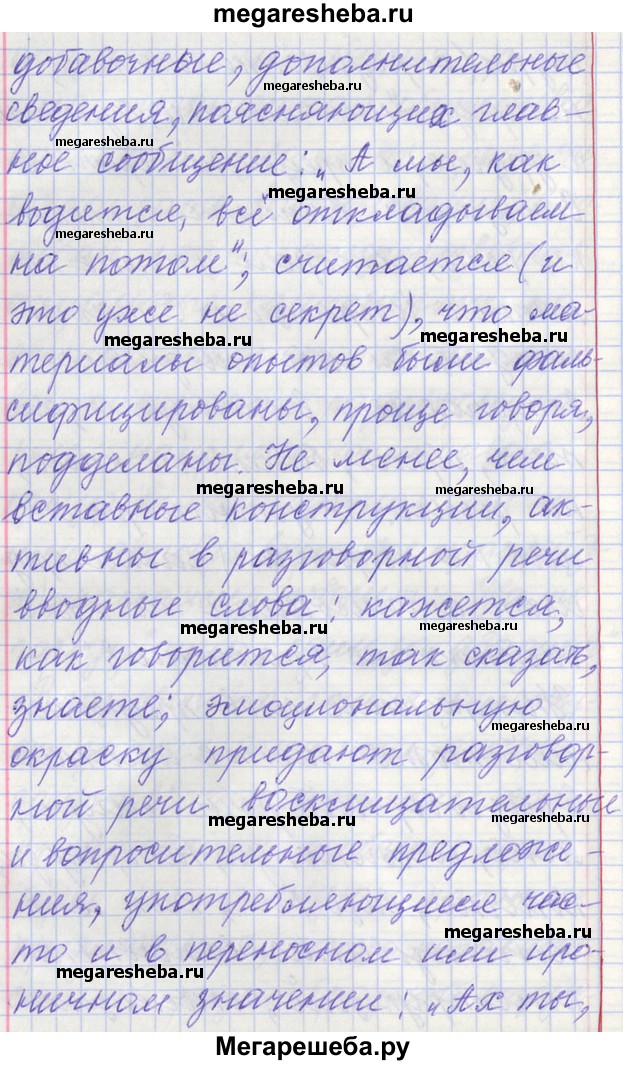 megaresheba.ru
добавочные, дополнительные
megaresheba.ru
сведения, поясняющих глав-
megaresheba.ru
ное сообщение: „А мы, как
megaresheba.ru
водится, всё откладываем
megaresheba.ru
на потом"; считается (и
это уже не секрет), что ма-
megaresheba.ru megaresheba.ru
териалы опытов были фаль-
сифицированы, проще говоря,
подделаны. Не менее, чем
megaresheba.ru megaresheba.ru
вставные конструкции, ак-
тивны в разговорной речи
вводные слова: кажется,
megaresheba.ru megaresheba.ru
как говорится, так сказать,
знаете; эмоциональную
megaresheba.ru
окраску придают разговор-
ной речи восклицательные
megaresheba.ru megaresheba.ru
и вопросительные предложе-
ния, употребляющиеся час-
megaresheba.ru
то и в переносном или иро-
megaresheba.ru
ничном значении: „Ах ты,
Мегарешеба.ру